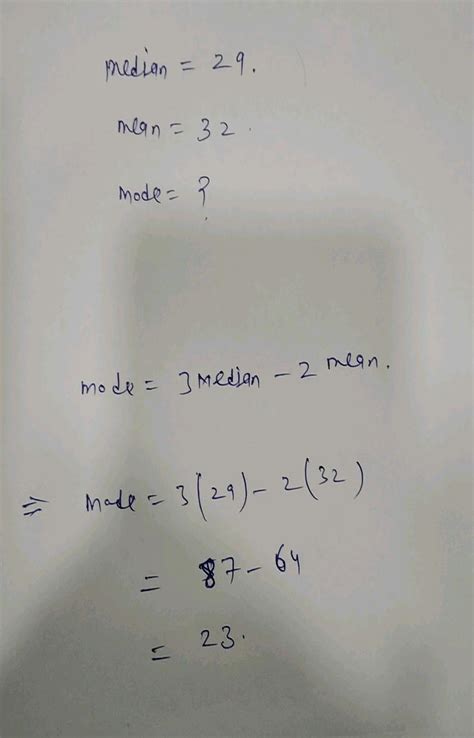 median = 29.
mean = 32.
mode = ?
mode = 3 median - 2 mean.
⇒ mode = 3(29) - 2(32)
= 87 - 64
= 23.